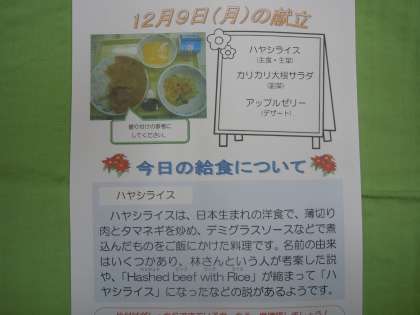 12月9日（月）の献立
ハヤシライス
（主食・主菜）
カリカリ大根サラダ
（副菜）
アップルゼリー
（デザート）
盛り付けの参考に
してください。
今日の給食について
ハヤシライス
ハヤシライスは、日本生まれの洋食で、薄切り
肉とタマネギを炒め、デミグラスソースなどで煮
込んだものをご飯にかけた料理です。名前の由来
はいくつかあり、林さんという人が考案した説
や、「Hashed beef with Rice」が縮まって「ハ
ヤシライス」になったなどの説があるようです。